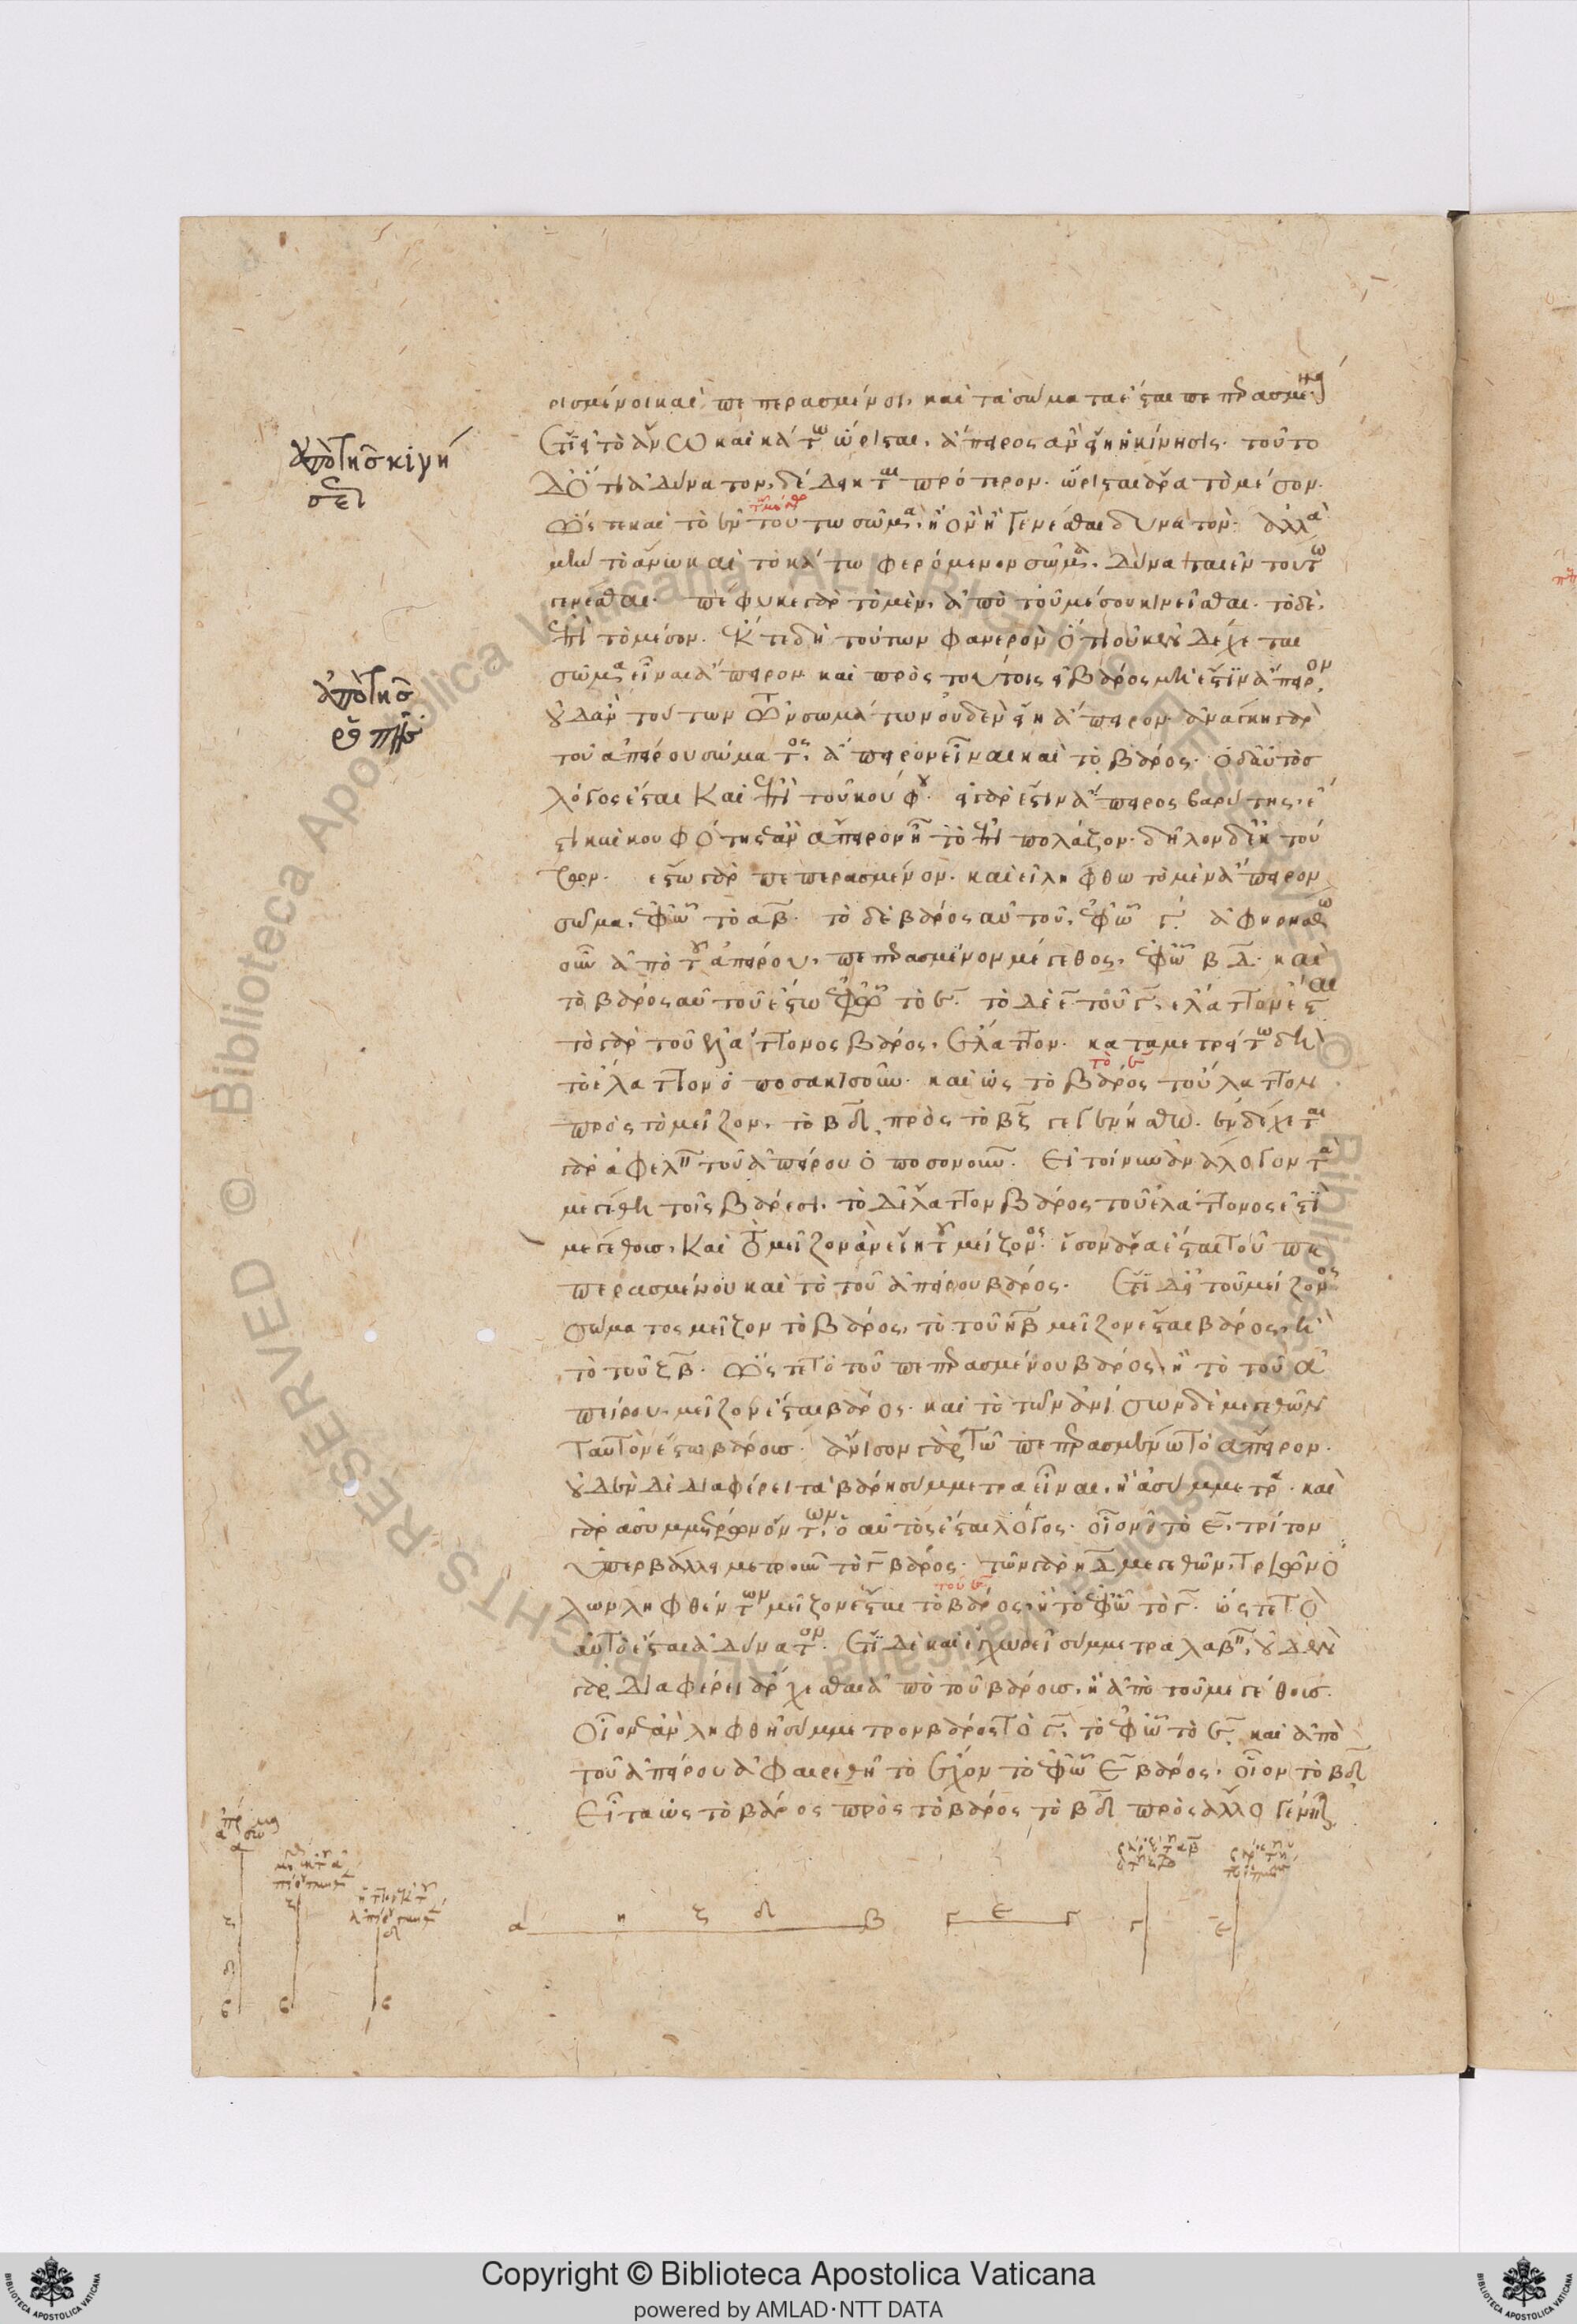 ρισμένοι καὶ πεπερασμένοι, καὶ τὰ σώματα ἔσται πεπερασμένα
ἔτι εἰ τὸ ἄνω καὶ κάτω ὥρισται, ἄπειρος ἂν εἴη ἡ κίνησις. τοῦτο
δ' ὅτι ἀδύνατον, δέδεικται πρότερον. ὥρισται ἄρα τὸ μέσον.
ὥστε καὶ τὸ ἐν τούτω σῶμα, ἢ ὂν ἢ γενέσθαι δυνατόν. ἀλλὰ
μὴν τὸ ἄνω καὶ τὸ κάτω φερόμενον σῶμα, δύναται ἐν τούτω
γενέσθαι. πέφυκε γὰρ τὸ μὲν, ἀπὸ τοῦ μέσου κινεῖσθαι. τὸ δὲ,
ἐπὶ τὸ μέσον. ἔκ τε δὴ τούτων φανερὸν ὅτι οὐκ ἐνδέχεται
σῶμα εἶναι ἄπειρον καὶ πρὸς τούτοις εἰ βάρος μή ἐστιν ἄπειρον,
οὐδ' ἂν τούτων τῶν σωμάτων οὐδὲν εἴη ἄπειρον. ἀνάγκη γὰρ
τοῦ ἀπείρου σώματος, ἄπειρον εἶναι καὶ τὸ βάρος. ὁ δ' αὐτὸς
λόγος ἔσται καὶ ἐπὶ τοῦ κούφου. εἰ γάρ ἐστιν ἄπειρος βαρύτης, ἔ
στι καὶ κουφότης ἂν ἄπειρον ἦ τὸ ἐπιπολάζον. δῆλον δ' ἐκ τού
των. ἔστω γὰρ πεπερασμένον. καὶ εἰλήφθω τὸ μὲν ἄπειρον
σῶμα, ἐφ' ὧ τὸ αβ. τὸ δὲ βάρος αὐτοῦ, ἐφ' ὧ γ. ἀφηρήσθω
οὖν ἀπὸ τοῦ ἀπείρου, πεπερασμένον μέγεθος, ἐφ' ὧ βδ. καὶ
τὸ βάρος αὐτοῦ ἔστω ἐφ' ὧ τὸ ε. τὸ δὲ ε τοῦ γ, ἔλαττον ἔσται
τὸ γὰρ τοῦ ἐλάττονος βάρος, ἔλαττον. καταμετρείτω δὴ
τὸ ἔλαττον ὁποσακισοῦν. καὶ ὡς τὸ βάρος τοὔλαττον
πρὸς τὸ μεῖζον, τὸ βδ πρὸς τὸ βζ γεγενήσθω. ἐνδέχεται
γὰρ ἀφελεῖν τοῦ ἀπείρου ὁποσονοῦν. εἰ τοίνυν ἀνάλογον τὰ
μεγέθη τοῖς βάρεσι, τὸ δ' ἔλαττον βάρος τοῦ ἐλάττονός ἐστι
μεγέθους, καὶ τὸ μεῖζον ἂν εἴη τοῦ μείζονος. ἴσον ἄρα ἔσται τοῦ πε
περασμένου καὶ τὸ τοῦ ἀπείρου βάρος. ἔτι δ' εἰ τοῦ μείζονος
σώματος μεῖζον τὸ βάρος, τὸ τοῦ ηβ μεῖζον ἔσται βάρος, ἢ
τὸ τοῦ ζβ. ὥστε τὸ τοῦ πεπερασμένου βάρος, ἢ τὸ τοῦ ἀ
πείρου μεῖζον ἔσται βάρος. καὶ τὸ τῶν ἀνίσων δὲ μεγεθῶν
ταυτὸν ἔσται βάρους. ἄνισον γὰρ τῶ πεπερασμένω τὸ ἄπειρον.
οὐδὲν δὲ διαφέρει τὰ βάρη σύμμετρα εἶναι, ἢ ἀσύμμετρα. καὶ
γὰρ ἀσυμμέτρων ὄντων, ὁ αὐτὸς ἔσται λόγος. οἷον εἰ τὸ ε, τρίτον
ὑπερβάλλει μετροῦν τὸ γ βάρος. τῶν γὰρ βδ μεγεθῶν, τριῶν ὅ
λων ληφθέντων μεῖζον ἔσται τὸ βάρος, ἢ τὸ ἐφ' ὧ τὸ γ. ὥστε τὸ
αὐτὸ ἔσται ἀδύνατον. ἔτι δὲ καὶ ἐγχωρεῖ σύμμετρα λαβεῖν, οὐδὲν
γὰρ διαφέρει ἄρχεσθαι ἀπὸ τοῦ βάρους, ἢ ἀπὸ τοῦ μεγέθους.
οἷον ἂν ληφθῆ σύμμετρον βάρος τῶ γ, τὸ ἐφ' ὧ τὸ ε, καὶ ἀπὸ
τοῦ ἀπείρου ἀφαιρεθῆ τὸ ἔχον τὸ ἐφ' ὧ ε βάρος, οἷον τὸ βδ
εἶτα ὡς τὸ βάρος πρὸς τὸ βάρος τὸ βδ πρὸς ἄλλο γένηται
ἀπὸ τῆς κινή
σε
ἀπὸ τῆς
α η ζ δ β
γ ε γ
γ ε
Copyright © Biblioteca Apostolica Vaticana
powered by AMLAD·NTT DATA